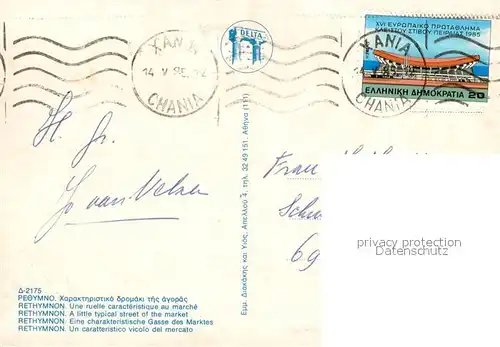 DELTA
ΧΑΝΙΑ
14 V 85
CHANIA
ΧΑΝΙΑ
CHANIA
XVI ΕΥΡΩΠΑΪΚΟ ΠΡΩΤΑΘΛΗΜΑ
ΚΛΕΙΣΤΟΥ ΣΤΙΒΟΥ ΠΕΙΡΑΙΑΣ 1985
ΕΛΛΗΝΙΚΗ ΔΗΜΟΚΡΑΤΙΑ 20
H. Gr.
J. van Velzen
Frau
Schu
69
privacy protection
Datenschutz
Εμμ. Διακάκης και Υιός, Απελλού 4, τηλ. 32 49 151, Αθήνα (111)
Δ-2175
ΡΕΘΥΜΝΟ. Χαρακτηριστικό δρομάκι τής άγορᾶς
RETHYMNON. Une ruelle caractéristique au marché
RETHYMNON. A little typical street of the market
RETHYMNON. Eine charakteristische Gasse des Marktes
RETHYMNON. Un caratteristico vicolo del mercato